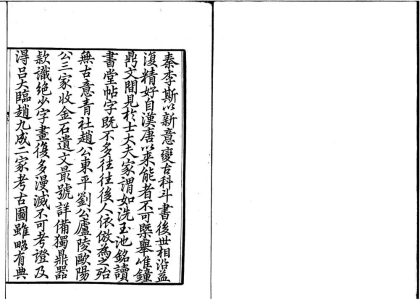 秦李斯以新意變古科斗書後世相沿益
復精好自漢唐以來能者不可槩舉惟鐘
鼎文間見於士大夫家謂如洗玉池銘讀
書堂帖字既不多往往後人依倣為之殆
無古意青社趙公東平劉公廬陵歐陽
公三家收金石遺文最號詳備獨鼎器
款識絕少字畫復多漫滅不可考證及
得呂大臨趙九成二家考古圖雖略有典